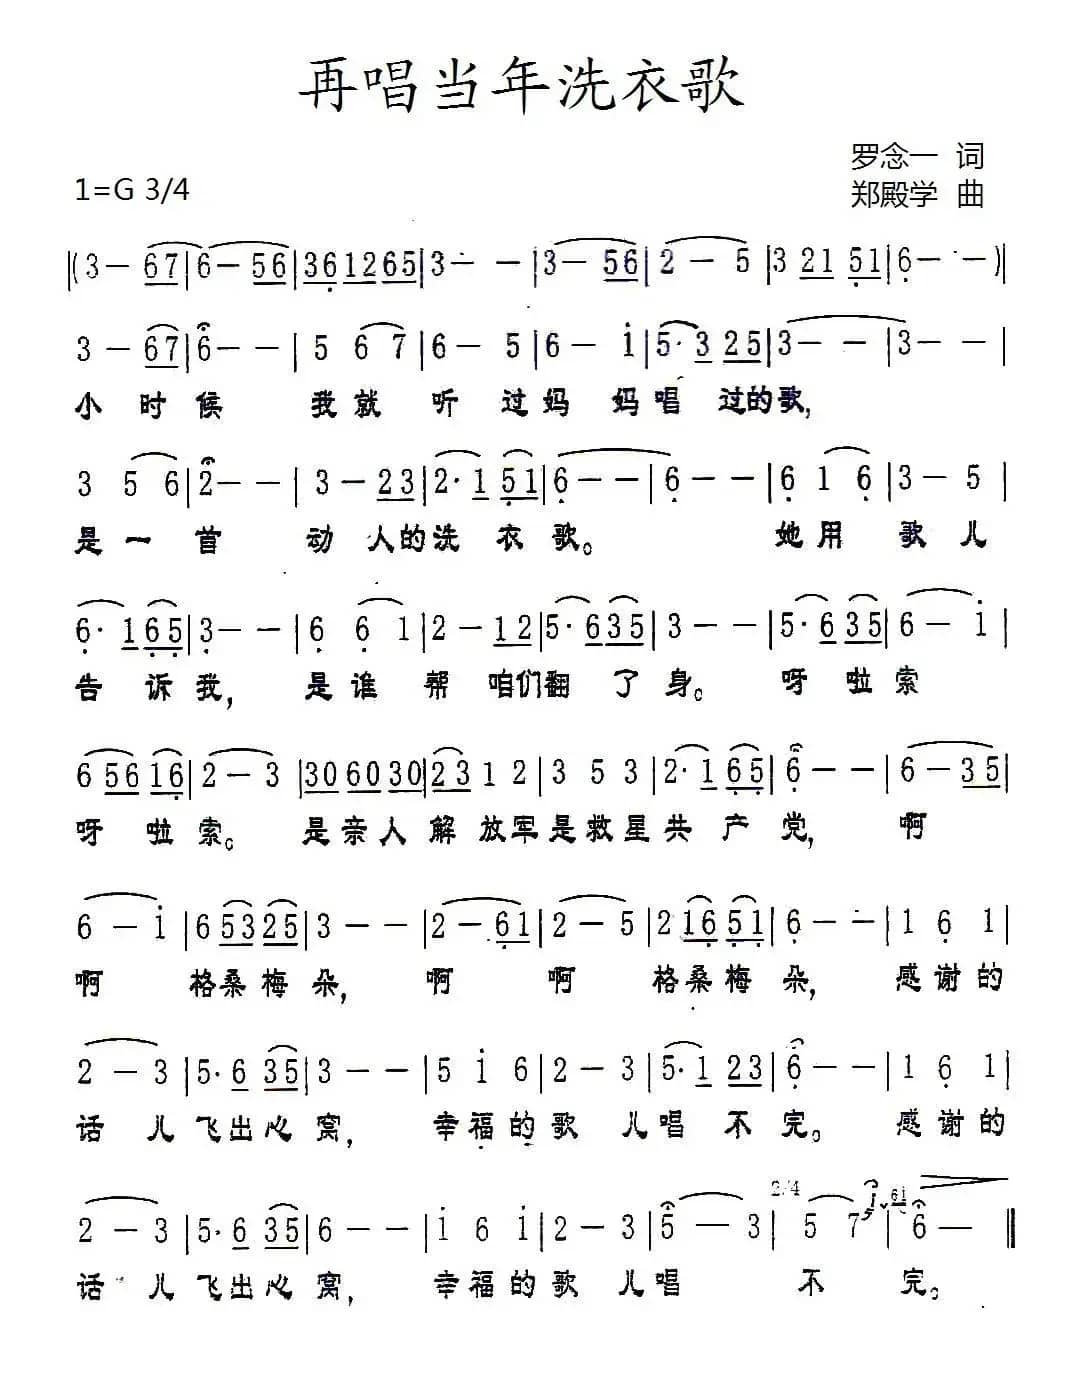 再唱当年洗衣歌
罗念一 词
1=G 3/4
郑殿学 曲
(3— 67|6—56|361265|3— —|3—56|2 — 5|3 21 51|6— —)|
3 — 67|6— — | 5 6 7 | 6 — 5 | 6 — i | 5· 3 25 | 3— — | 3— — |
小 时 候 我 就 听 过 妈 妈 唱 过 的 歌,
3 5 6 | 2— — | 3 — 23 | 2· 1 51 | 6— — | 6— — | 6 1 6 | 3 — 5 |
是 一 首 动 人 的 洗 衣 歌。 她 用 歌 儿
6· 165 | 3— — | 6 6 1 | 2 — 12 | 5· 635 | 3 — — | 5· 6 35 | 6 — i |
告 诉 我, 是 谁 帮 咱们翻 了 身。 呀 啦 索
6 56 16 | 2 — 3 | 30 60 30 | 23 1 2 | 3 5 3 | 2· 1 65 | 6 — — | 6 — 35 |
呀 啦 索。 是亲人 解 放军是救星共 产 党, 啊
6 — i | 6 53 25 | 3 — — | 2 — 61 | 2 — 5 | 2 16 51 | 6 — — | 1 6 1 |
啊 格桑梅 朵, 啊 啊 格桑梅 朵, 感谢的
2 — 3 | 5· 6 35 | 3 — — | 5 i 6 | 2 — 3 | 5· 1 23 | 6 — — | 1 6 1 |
话 儿 飞出心 窝, 幸福的歌 儿唱 不 完。 感谢的
2/4
61
2 — 3 | 5· 6 35 | 6 — — | i 6 i | 2 — 3 | 5 — 3 | 5 7 i | 6 — ‖
话 儿 飞出心 窝, 幸福的歌 儿唱 不 完。